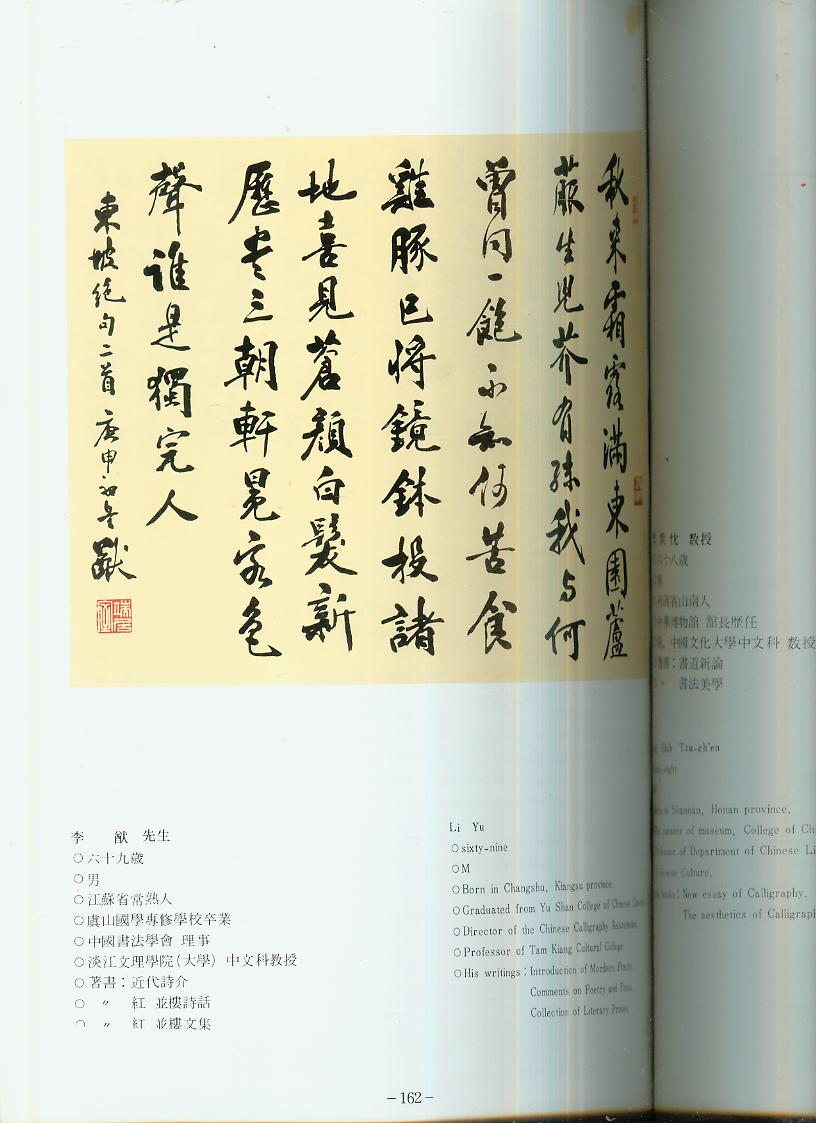 秋来霜露滿東園蘆
菔生兒芥有孫我与何
曾同一飽不知何苦食
雞豚已将鏡鉢投諸
地喜見蒼顏白髮新
歷盡三朝軒冕客色
聲誰是獨完人
東坡絕句二首庚申初冬猷
李 猷 先生
○六十九歲
○男
○江蘇省常熟人
○虞山國學專修學校卒業
○中國書法學會 理事
○淡江文理學院(大學) 中文科教授
○著書:近代詩介
○ 〃 紅 並樓詩話
〃 紅 並樓文集
Li Yu
○sixty-nine
○M
○Born in Changshu, Kiangsu province.
○Graduated from Yu Shan College of Chinese
○Director of the Chinese Calligraphy
○Professor of Tam Kiang Cultural College.
○His writings : Introduction of Mordern Poetry.
Comments on Poetry and Poets.
Collection of Literary Proses.
－162－
教授
六十八歲
河南省山南人
中華博物館 舘長歷任
中國文化大學中文科 教授
著書：書道新論
〃 書法美學
Tzu-ch'en
-eight
in Siannan, Honan province.
curator of museum, College of
of Department of Chinese
Culture.
: New essay of Calligraphy.
The aesthetics of